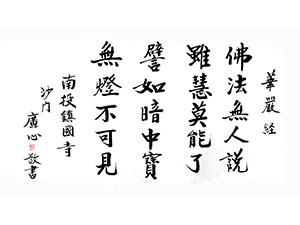 華嚴経
佛法無人說
雖慧莫能了
譬如暗中寶
無燈不可見
南投鎮國寺
沙門
廣心敬書